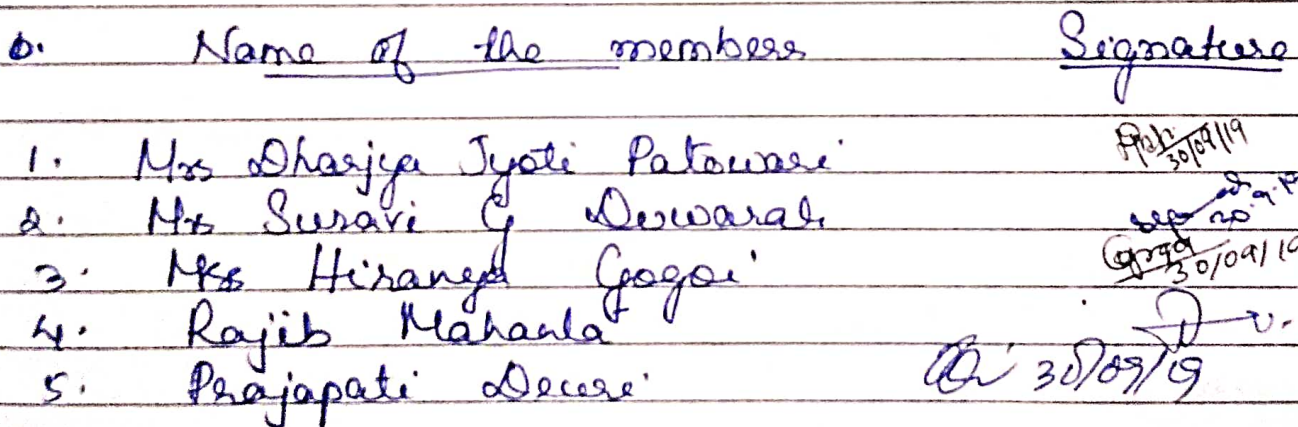 Name of the members Signature
1. Mrs Dharjya Jyoti Patowari 30/09/19
2. Mr Suravi G Duwarah
3. Mrs Hiranya Gogoi 30/09/19
4. Rajib Mahanta
5. Prajapati Deuri 30/09/19